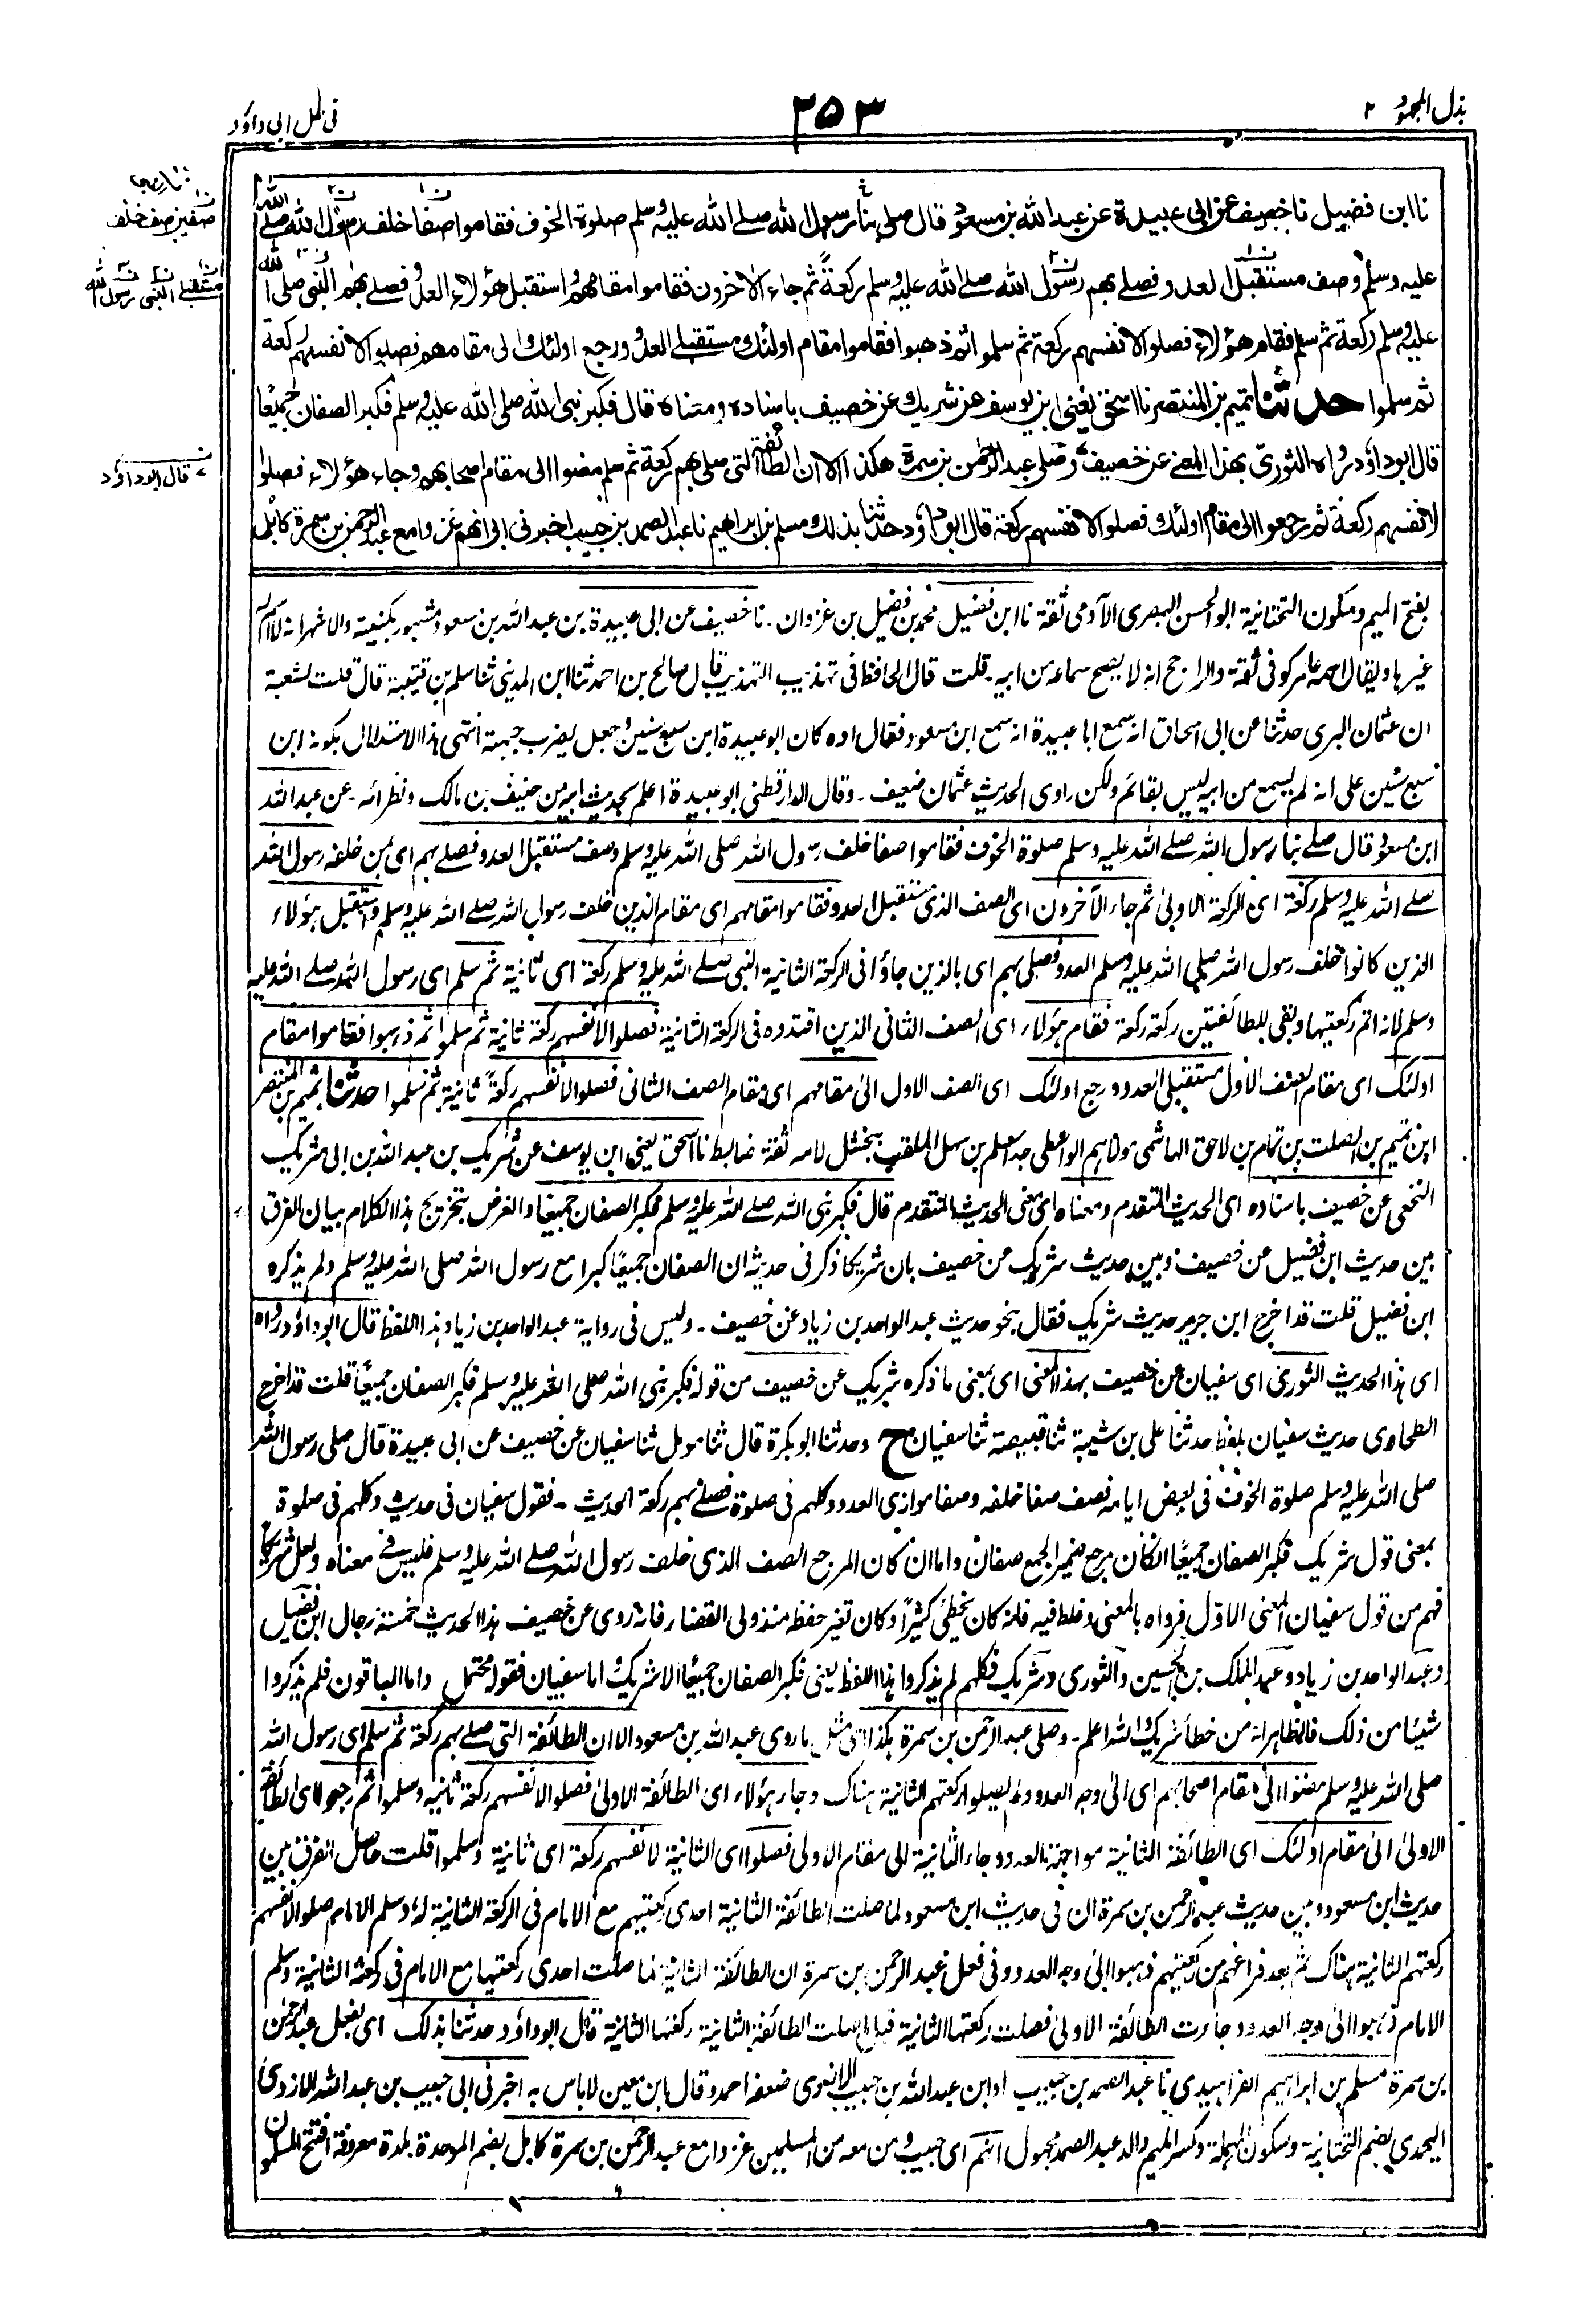 بذل المجهود ٢
٣٥٣
فى حل ابى داؤد
نا ابن فضيل نا خصيف عن ابى عبيدة عن عبد الله بن مسعود قال صلى بنا رسول الله صلے الله عليه وسلم صلوة الخوف فقاموا صفا خلف رسول الله صلے الله
عليه وسلم وصف مستقبل العدو فصلے بهم رسول الله صلے الله عليه وسلم ركعة ثم جاء الاخرون فقاموا مقامهم واستقبل هؤلاء العدو فصلے بهم النبى صلى الله
عليه وسلم ركعة ثم سلم فقام هؤلاء فصلوا لانفسهم ركعة ثم سلموا ثم ذهبوا فقاموا مقام اولئك مستقبلے العدو ورجع اولئك الى مقامهم فصلوا لانفسهم ركعة
ثم سلموا حدثنا تميم بن المنتصر نا اسحق يعنى ابن يوسف عن شريك عن خصيف باسناده ومعناه قال فكبر نبى الله صلى الله عليه وسلم فكبر الصفان جميعا
قال ابو داؤد رواه الثورى بهذا المعنے عن خصيف وصلى عبد الرحمن بن سمرة هكذا الا ان الطائفة التى صلى بهم ركعة ثم سلم مضوا الى مقام اصحابهم وجاء هؤلاء فصلوا
لانفسهم ركعة ثم رجعوا الى مقام اولئك فصلوا لانفسهم ركعة قال ابو داؤد حدثنا بذلك مسلم بن ابراهيم نا عبد الصمد بن حبيب اخبرنى ابى انهم غزوا مع عبد الرحمن بن سمرة كابل
صفين صف خلف
مستقبلے النبى رسول الله
قال ابو داؤد
بفتح الميم وسكون التحتانية ابو الحسن البصرى الآدمى ثقة نا ابن فضيل محمد بن فضيل بن غزوان ۔ نا خصيف عن ابى عبيدة بن عبد الله بن مسعود مشهور بكنيته والاشهر انه لا اسم له
غيرها ويقال اسمه عامر كوفى ثقة والراجح انه لا يصح سماعه من ابيه قلت قال الحافظ فى تهذيب التهذيب قال صالح بن احمد ثنا ابن المدينى ثنا سلم بن قتيبة قال قلت لشعبة
ان عثمان البرى حدثنا عن ابى اسحاق انه سمع ابا عبيدة انه سمع ابن مسعود فقال اوه كان ابو عبيدة ابن سبع سنين وجعل يضرب جبهته انتهى هذا الاستدلال بكونه ابن
سبع سنين على انه لم يسمع من ابيه ليس بقائم ولكن راوى الحديث عثمان ضعيف ۔ وقال الدارقطنى ابو عبيدة اعلم بحديث ابيه من حنيف بن مالك ونظرائه ۔ عن عبد الله
ابن مسعود قال صلے بنا رسول الله صلے الله عليه وسلم صلوة الخوف فقاموا صفا خلف رسول الله صلى الله عليه وسلم وصف مستقبل العدو فصلے بهم اى من خلفه رسول الله
صلے الله عليه وسلم ركعة اى الركعة الاولى ثم جاء الآخرون اى الصف الذى مستقبل العدو فقاموا مقامهم اى مقام الذين خلف رسول الله صلے الله عليه وسلم واستقبل هؤلاء
الذين كانوا خلف رسول الله صلى الله عليه وسلم العدو فصلى بهم اى بالذين جاؤا فى الركعة الثانية النبى صلے الله عليه وسلم ركعة اى ثانية ثم سلم اى رسول الله صلے الله عليه
وسلم لانه اتم ركعتيها وبقى للطائفتين ركعة ركعة فقام هؤلاء اى الصف الثانى الذين اقتدوه فى الركعة الثانية فصلوا لانفسهم ركعة ثانية ثم سلموا ثم ذهبوا فقاموا مقام
اولئك اى مقام الصف الاول مستقبلى العدو ورجع اولئك اى الصف الاول الى مقامهم اى مقام الصف الثانى فصلوا لانفسهم ركعة ثانية ثم سلموا حدثنا تميم بن المنتصر
ابن تميم بن الصلت بن تمام بن لاحق الهاشمى مولاهم الواسطى جد اسلم بن سهل الملقب ببحشل لامه ثقة ضابط نا اسحق يعنى ابن يوسف عن شريك بن عبد الله بن ابى شريك
النخعى عن خصيف باسناده اى الحديث المتقدم ومعناه اى معنى الحديث المتقدم قال فكبر نبى الله صلے الله عليه وسلم فكبر الصفان جميعا والغرض بتخريج هذا الكلام بيان الفرق
بين حديث ابن فضيل عن خصيف وبين حديث شريك عن خصيف بان شريكا ذكر فى حديثه ان الصفان جميعا كبرا مع رسول الله صلى الله عليه وسلم ولم يذكره
ابن فضيل قلت قد اخرج ابن جرير حديث شريك فقال بنحو حديث عبد الواحد بن زياد عن خصيف ۔ وليس فى رواية عبد الواحد بن زياد هذا اللفظ قال ابو داؤد رواه
اى هذا الحديث الثورى اى سفيان عن خصيف بهذا المعنى اى بمعنى ما ذكره شريك عن خصيف من قوله فكبر نبى الله صلى الله عليه وسلم فكبر الصفان جميعا قلت قد اخرج
الطحاوى حديث سفيان بلفظ حدثنا على بن شيبة ثنا قبيصة ثنا سفيان ح وحدثنا ابو بكرة قال ثنا مومل ثنا سفيان عن خصيف عن ابى عبيدة قال صلى رسول الله
صلى الله عليه وسلم صلوة الخوف فى بعض ايامه فصف صفا خلفه وصفا موازى العدو وكلهم فى صلوة فصلے بهم ركعة الحديث ۔ فقول سفيان فى حديثه وكلهم فى صلوة
بمعنى قول شريك فكبر الصفان جميعا ان كان مرجع ضمير الجمع صفان واما ان كان المرجع الصف الذى خلف رسول الله صلے الله عليه وسلم فليس فے معناه ولعل شريكا
فهم من قول سفيان المعنى الاول فرواه بالمعنى وغلط فيه فانه كان يخطئ كثيرا وكان تغير حفظه منذ ولى القضاء فانه روى عن خصيف هذا الحديث خمسة رجال ابن فضيل
وعبد الواحد بن زياد وعبد الملك بن الحسين والثورى وشريك فكلهم لم يذكروا هذا اللفظ يعنى فكبر الصفان جميعا الا شريك واما سفيان فقوله محتمل واما الباقون فلم يذكروا
شيئا من ذلك فالظاهر انه من خطأ شريك والله اعلم ۔ وصلى عبد الرحمن بن سمرة هكذا اى مثل ما روى عبد الله بن مسعود الا ان الطائفة التى صلے بهم ركعة ثم سلم اى رسول الله
صلى الله عليه وسلم مضوا الى مقام اصحابهم اى الى وجه العدو ولم يصلوا ركعتهم الثانية هناك وجاء هؤلاء اى الطائفة الاولى فصلوا لانفسهم ركعة ثانية وسلموا ثم رجعوا اى الطائفة
الاولى الى مقام اولئك اى الطائفة الثانية مواجهة العدو وجاء الثانية الى مقام الاولى فصلوا اى الثانية لانفسهم ركعة اى ثانية وسلموا قلت حاصل الفرق بين
حديث ابن مسعود وبين حديث عبد الرحمن بن سمرة ان فى حديث ابن مسعود لما صلت الطائفة الثانية احدى ركعتيهم مع الامام فى الركعة الثانية له وسلم الامام صلوا لانفسهم
ركعتهم الثانية هناك ثم بعد فراغهم من ركعتيهم ذهبوا الى وجه العدو وفى فعل عبد الرحمن بن سمرة ان الطائفة الثانية لما صلت احدى ركعتيها مع الامام فى ركعته الثانية وسلم
الامام ذهبوا الى وجه العدو وجاءت الطائفة الاولى فصلت ركعتها الثانية قبل صلت الطائفة الثانية ركعتها الثانية قال ابو داؤد حدثنا بذلك اى بفعل عبد الرحمن
بن سمرة مسلم بن ابراهيم الفراهيدي نا عبد الصمد بن حبيب او ابن عبد الله بن حبيب الازدى ضعفه احمد وقال ابن معين لا باس به اخبرنى ابى حبيب بن عبد الله الازدى
اليحمدى بضم التحتانية وسكون المهملة وكسر الميم والد عبد الصمد مجهول انهم اى حبيب ومن معه من المسلمين غزوا مع عبد الرحمن بن سمرة كابل بضم الموحدة بلدة معروفة افتتح المسلمون